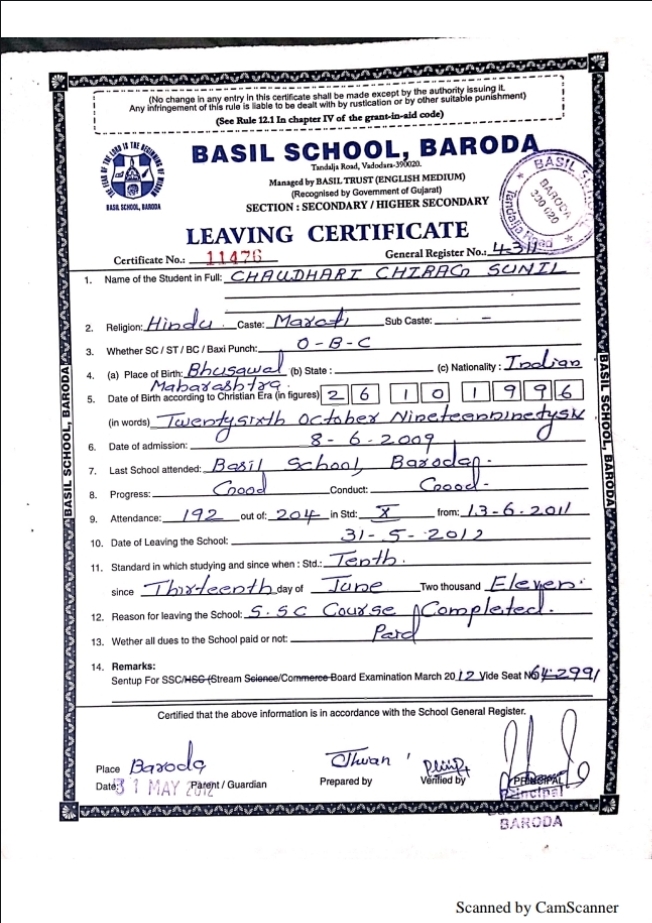 (No change in any entry in this certificate shall be made except by the authority issuing it.
Any infringement of this rule is liable to be dealt with by rustication or by other suitable punishment)
(See Rule 12.1 In chapter IV of the grant-in-aid code)
THE FEAR OF THE LORD IS THE BEGINNING OF WISDOM
BASIL SCHOOL, BARODA
BASIL SCHOOL, BARODA
Tandalja Road, Vadodara-390020.
Managed by BASIL TRUST (ENGLISH MEDIUM)
(Recognised by Government of Gujarat)
SECTION : SECONDARY / HIGHER SECONDARY
BASIL
BARODA
390 020
Tandalja Road
LEAVING CERTIFICATE
Certificate No.: 11476 General Register No.: 4311
1. Name of the Student in Full: CHAUDHARI CHIRAG SUNIL
2. Religion: Hindu Caste: Marati Sub Caste: -
3. Whether SC / ST / BC / Baxi Punch: O-B-C
4. (a) Place of Birth: Bhusawal (b) State : (c) Nationality : Indian
Maharashtra.
5. Date of Birth according to Christian Era (in figures) 2 6 1 0 1 9 9 6
(in words) Twentysixth October Nineteenninetysix
6. Date of admission: 8-6-2009
7. Last School attended: Basil School, Baroda.
8. Progress: Good Conduct: Good.
9. Attendance: 192 out of: 204 in Std: X from: 13-6-2011
10. Date of Leaving the School: 31-5-2012
11. Standard in which studying and since when : Std.: Tenth.
since Thirteenth day of June Two thousand Eleven.
12. Reason for leaving the School: S.SC Course Completed.
13. Wether all dues to the School paid or not: Paid
14. Remarks:
Sentup For SSC/HSC (Stream Science/Commerce Board Examination March 2012 Vide Seat No
Certified that the above information is in accordance with the School General Register.
Place Baroda
Date: 31 MAY 2012 Parent / Guardian Prepared by Verified by PRINCIPAL
Principal
BARODA
BASIL SCHOOL, BARODA
BASIL SCHOOL, BARODA
Scanned by CamScanner